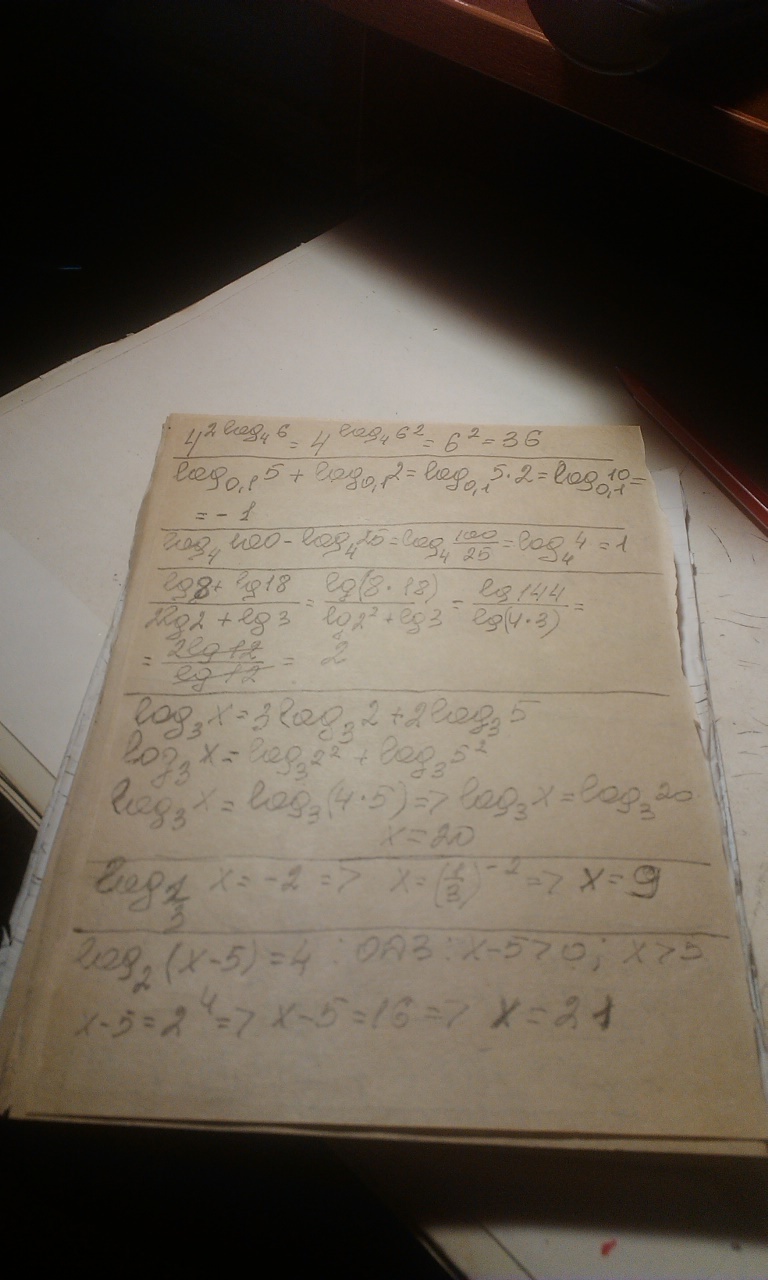 4^{2 log_4 6} = 4^{log_4 6^2} = 6^2 = 36
log_{0,1} 5 + log_{0,1} 2 = log_{0,1} 5·2 = log_{0,1} 10 =
= -1
log_4 100 - log_4 25 = log_4 \frac{100}{25} = log_4 4 = 1
\frac{lg 8 + lg 18}{2 lg 2 + lg 3} = \frac{lg(8·18)}{lg 2^2 + lg 3} = \frac{lg 144}{lg(4·3)} =
= \frac{2 lg 12}{lg 12} = 2
log_3 x = 3 log_3 2 + 2 log_3 5
log_3 x = log_3 2^2 + log_3 5^2
log_3 x = log_3 (4·5) => log_3 x = log_3 20
x = 20
log_{\frac{1}{3}} x = -2 => x = (\frac{1}{3})^{-2} => x = 9
log_2 (x-5) = 4 : ОДЗ : x-5>0; x>5
x-5 = 2^4 => x-5 = 16 => x = 21